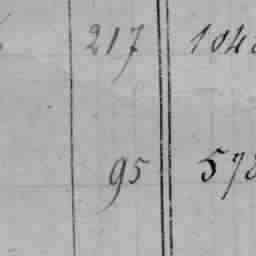 217 104
95 57